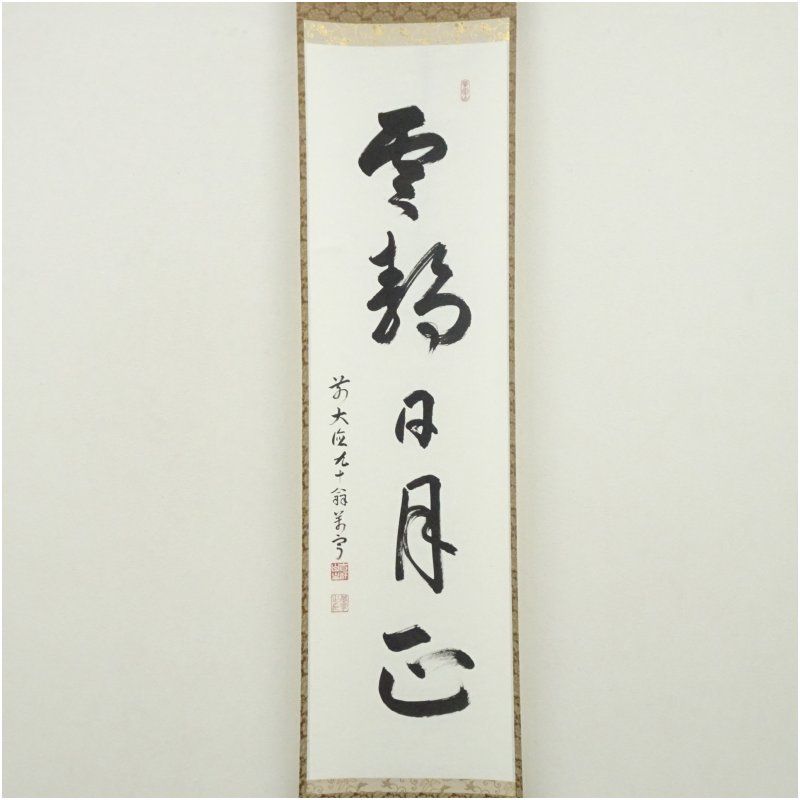 雲静日月正
前大徳九十翁萬寧